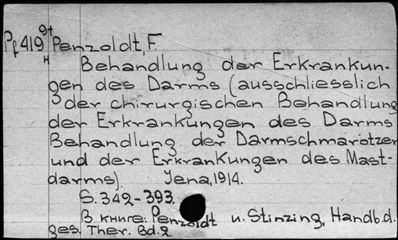 Pf419 Penzoldt, F.
Behandlung der Erkrankun-
gen des Darms (ausschliesslich
der chirurgischen Behandlung
der Erkrankungen des Darms
Behandlung der Darmschmarotzer
und der Erkrankungen des Mast-
darms). Jena, 1914.
S. 342-393.
В книге: Penzoldt u. Stinzing, Handb. d.
ges. Ther. Bd. 2.